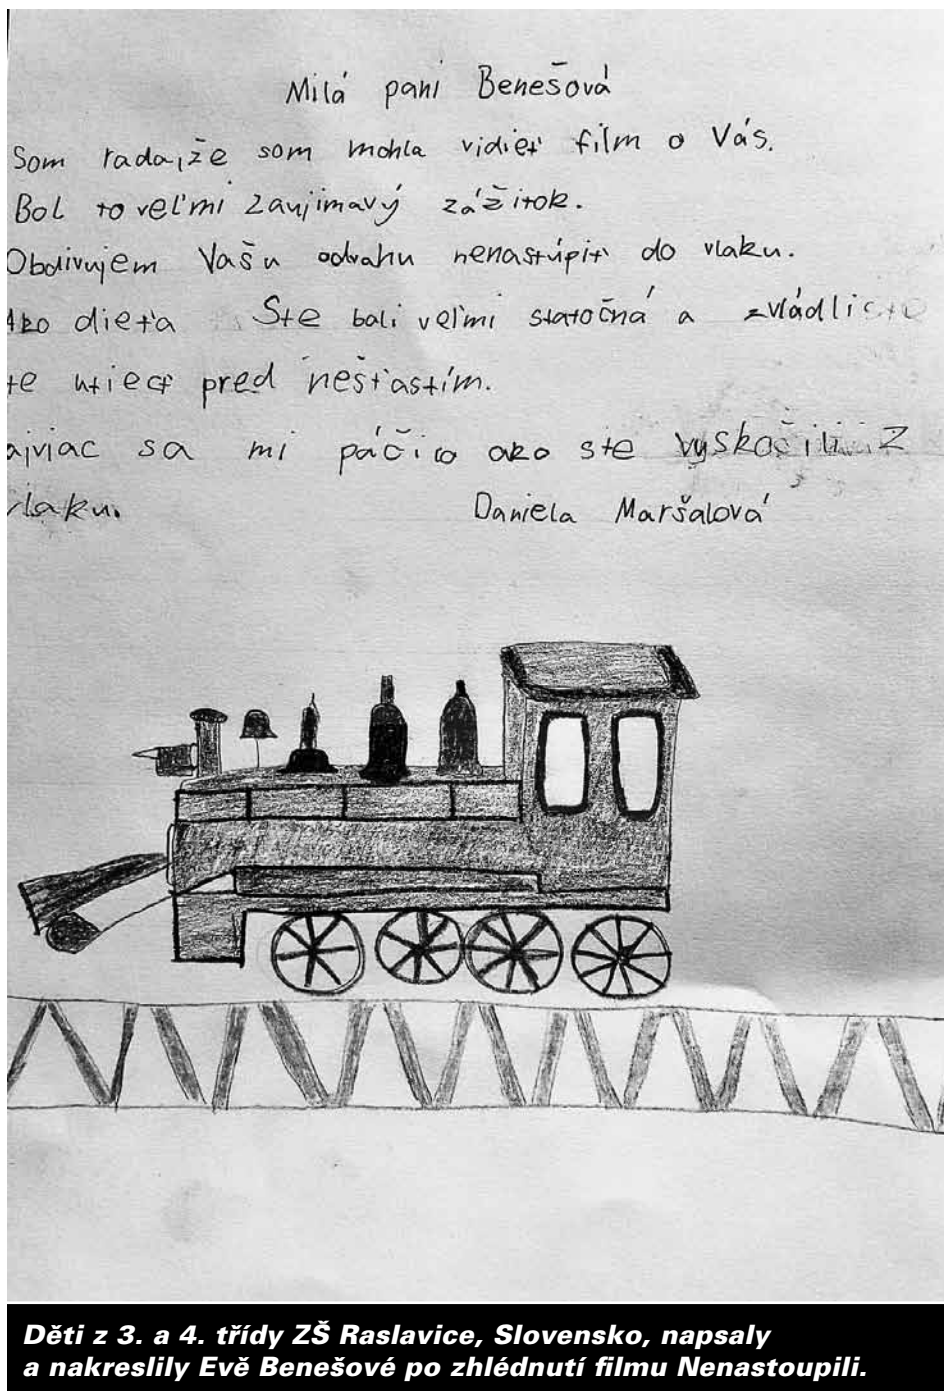 Milá pani Benešová
Som rada, že som mohla vidieť film o Vás.
Bol to veľmi zaujímavý zážitok.
Obdivujem Vašu odvahu nenastúpiť do vlaku.
Ako dieťa Ste boli veľmi statočná a zvládli ste
te utiecť pred nešťastím.
ajviac sa mi páčilo ako ste vyskočili z
vlaku. Daniela Maršalová
Děti z 3. a 4. třídy ZŠ Raslavice, Slovensko, napsaly
a nakreslily Evě Benešové po zhlédnutí filmu Nenastoupili.